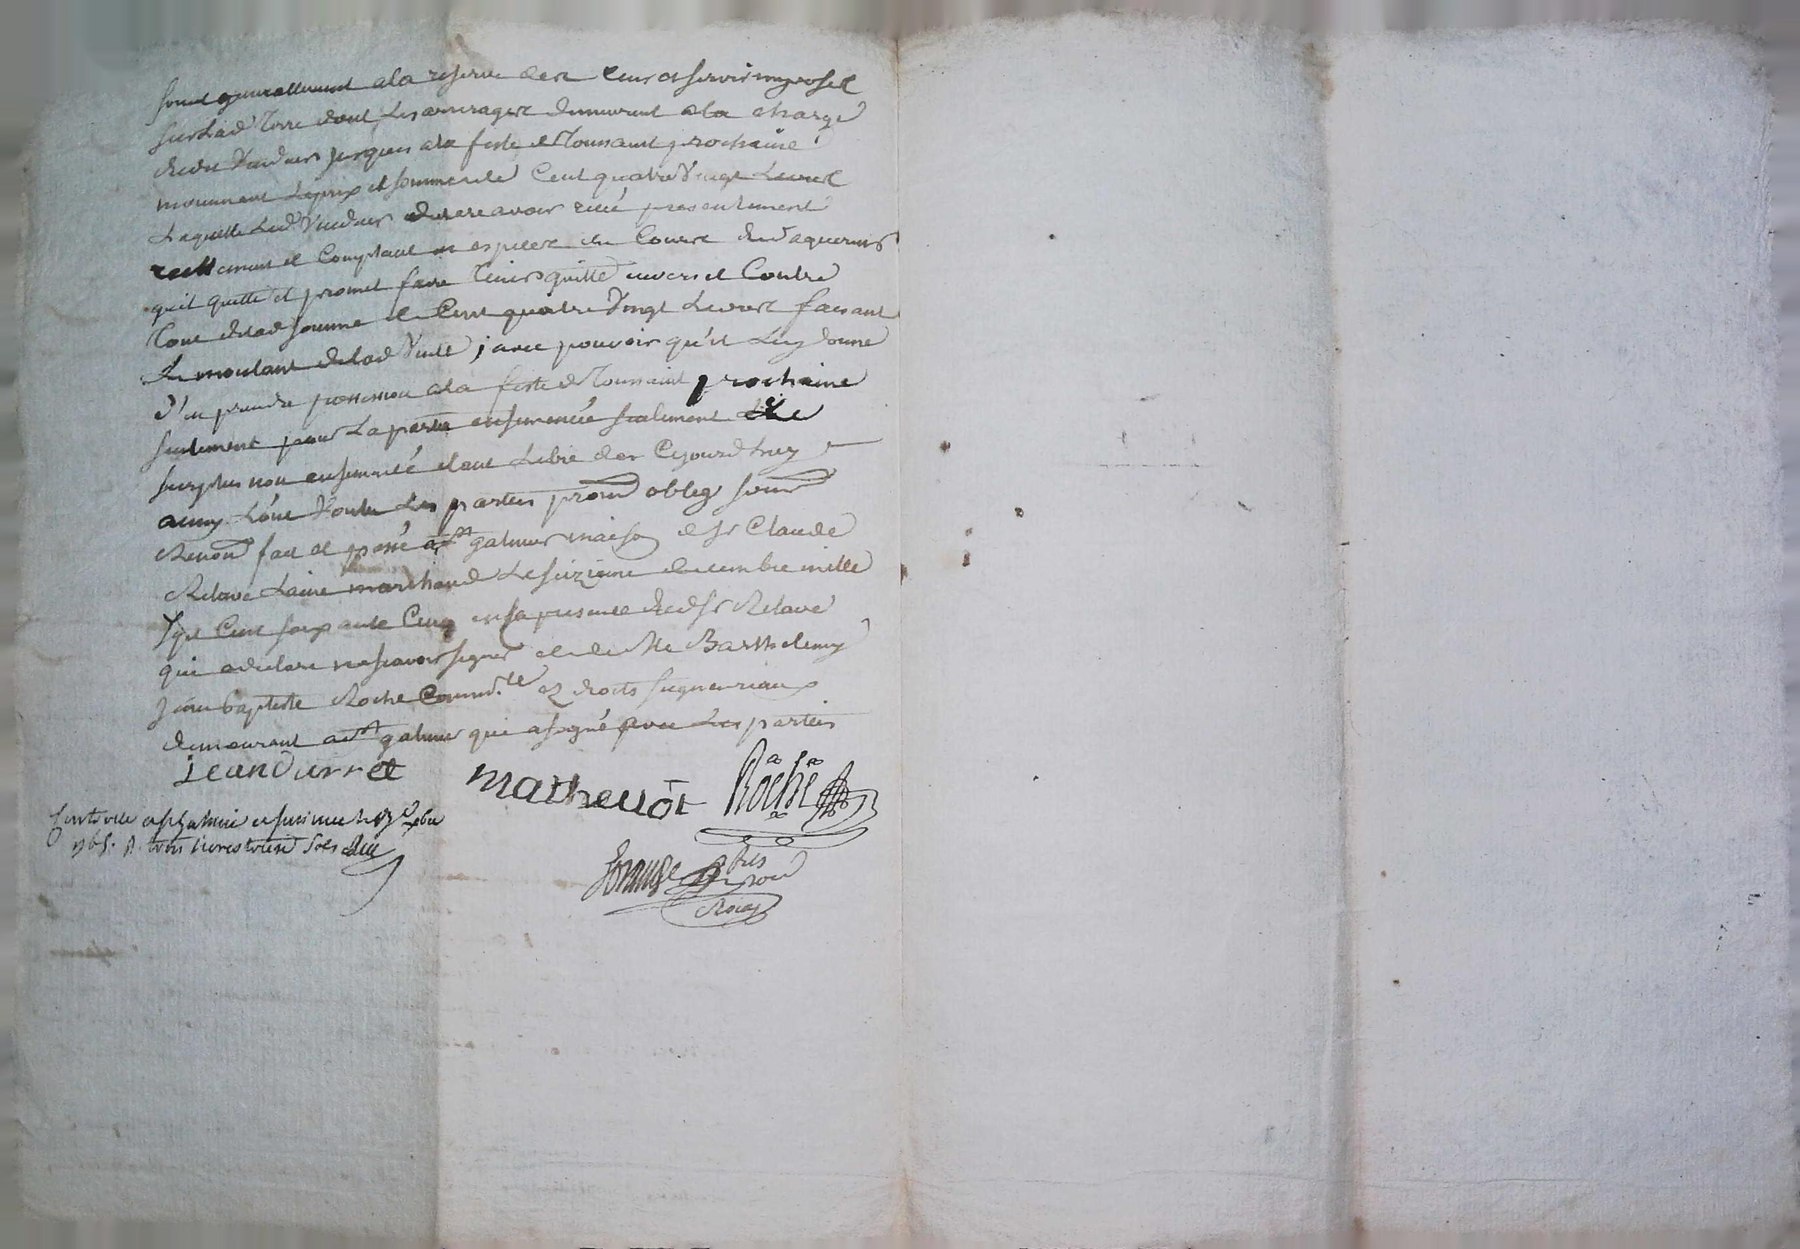 fonds generallement a la reserve des cens et servis imposés
sur lad terre dont les arrerages demeurent a la charge
dud Vendeur jusques a la feste de Toussaint prochaine
moyenant le prix et somme de Cent quatre Vingt Livres
Laquelle Led Vendeur declare avoir receu presentement
reellement et comptant en especes du Cours dud aquereur
qu'il quitte et promet faire tenir quitte envers et Contre
Tous de lad somme de Cent quatre Vingt Livres faisant
Le montant de lad Vente, avec pouvoir qu'il Luy donne
d'en prendre possession a la feste de Toussaint prochaine
seulement pour La partie ensemencée seulement Le
surplus non ensemencé etant Libre des Cejourd'huy
ainsy L'ont Voulu Les parties prom oblig soum
Renon fait et passé a St galmier maison de Sr Claude
Relave L'aine marchand Le seizieme decembre mille
sept Cent soixante Cinq en la presence dud Sr Relave
qui a declaré ne scavoir signer et de Me Barthelemy
Jean baptiste Roche Commre ez droits seigneuriaux
demeurant a St galmier qui a signé avec Les parties
jean durret
mathevot Roche
Controllé a St galmier
1765. R. trois livres